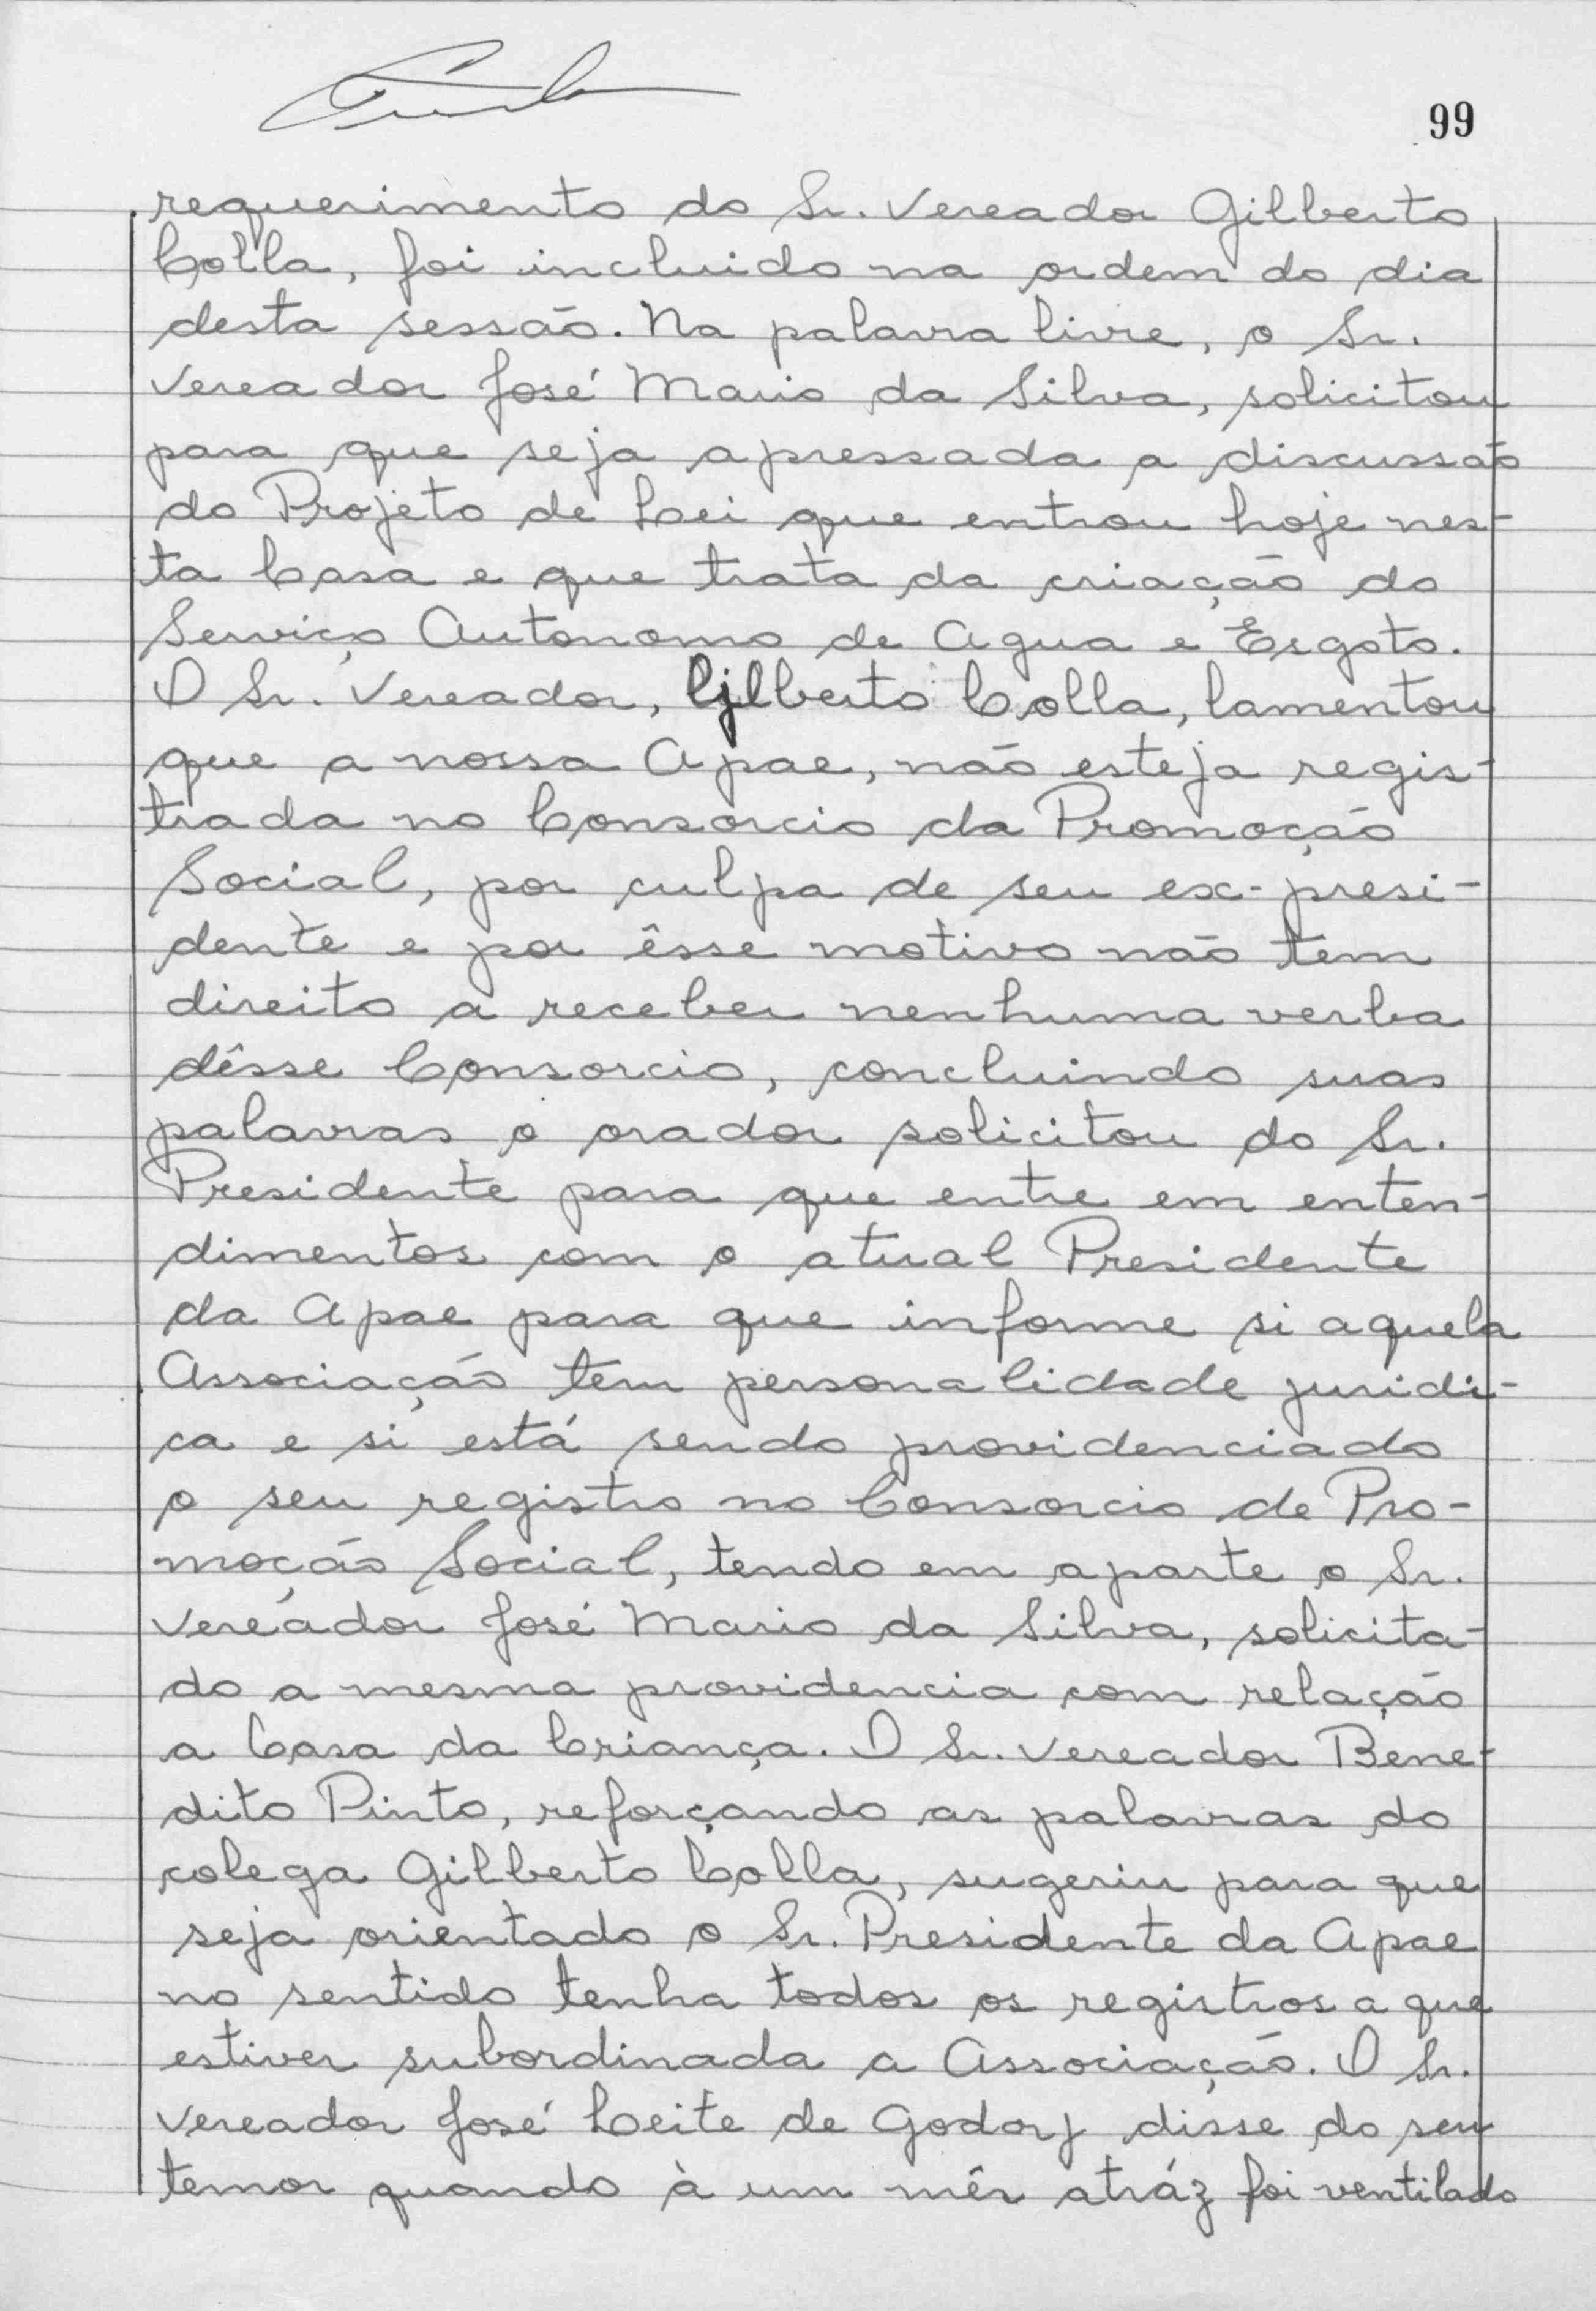 99
requerimento do Sr. Vereador Gilberto
Colla, foi incluido na ordem do dia
desta sessão. Na palavra livre, o Sr.
Vereador José Mario da Silva, solicitou
para que seja apressada a discussão
do Projeto de Lei que entrou hoje nes-
ta Casa e que trata da criação do
Serviço Autonomo de Agua e Esgoto.
O Sr. Vereador, Gilberto Colla, lamentou
que a nossa Apae, não esteja regis-
trada no Consorcio da Promoção
Social, por culpa de seu ex-presi-
dente e por êsse motivo não tem
direito a receber nenhuma verba
dêsse Consorcio, concluindo suas
palavras o orador solicitou do Sr.
Presidente para que entre em enten-
dimentos com o atual Presidente
da Apae para que informe si aquela
Associação tem personalidade juridi-
ca e si está sendo providenciado
o seu registro no Consorcio de Pro-
moção Social, tendo em aparte o Sr.
Vereador José Mario da Silva, solicita-
do a mesma providencia com relação
a Casa da Criança. O Sr. Vereador Bene-
dito Pinto, reforçando as palavras do
colega Gilberto Colla, sugeriu para que
seja orientado o Sr. Presidente da Apae
no sentido tenha todos os registros a que
estiver subordinada a Associação. O Sr.
Vereador José Leite de Godoy disse do seu
temor quando à um mês atráz foi ventilado